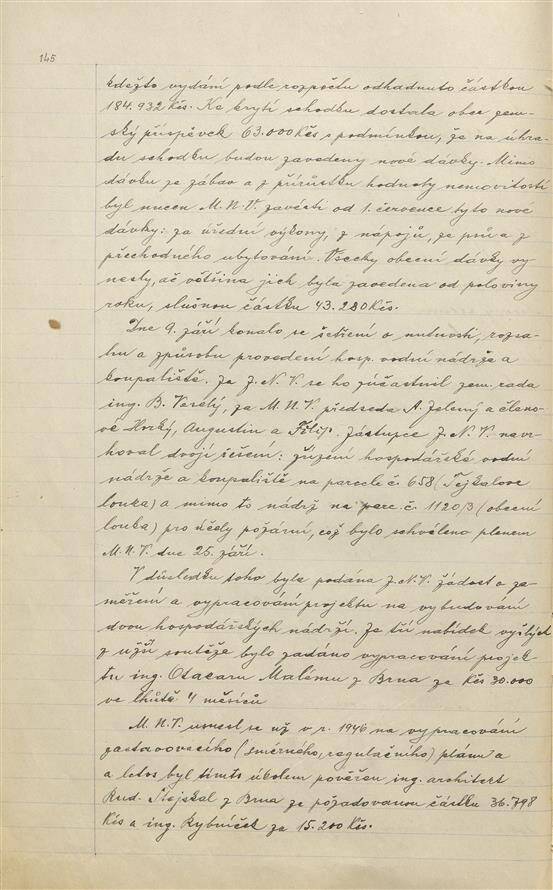 145
kdežto vydání podle rozpočtu odhadnuto částkou
184.932 Kčs. Ke krytí schodku dostala obec zem-
ský příspěvek 63.000 Kčs s podmínkou, že na úhra-
du schodku budou zavedeny nové dávky. Mimo
dávku ze zábav a z přírůstku hodnoty nemovitostí
byl nucen M.N.V. zavésti od 1. července tyto nové
dávky: za úřední výkony, z nápojů, ze psů a z
přechodného ubytování. Všecky obecní dávky vy
nesly, ač většina jich byla zavedena od poloviny
roku, slušnou částku 43.280 Kčs.
Dne 9. září konalo se šetření o nutnosti, rozsa-
hu a způsobu provedení hosp. vodní nádrže a
koupaliště. Za Z.N.V. se ho zúčastnil zem. rada
ing. B. Veselý, za M.N.V. předseda A. Zelený a členo-
vé Horký, Augustin a Filip. Zástupce Z.N.V. navr-
hoval dvojí řešení: zřízení hospodářské vodní
nádrže a koupaliště na parcele č. 658 (Tejkalova
louka) a mimo to nádrž na parc. č. 1120/3 (obecní
louka) pro účely požární, což bylo schváleno plenem
M.N.V. dne 25. září.
V důsledku toho byla podána Z.N.V. žádost o za-
měření a vypracování projektu na vybudování
dvou hospodářských nádrží. Ze tří nabídek vyšlých
z užší soutěže bylo zadáno vypracování projek-
tu ing. Otakaru Malému z Brna za Kčs 30.000
ve lhůtě 4 měsíců
M.N.V. usnesl se už v r. 1946 na vypracování
zastavovacího (směrného, regulačního) plánu a
a letos byl tímto úkolem pověřen ing. architekt
Rud. Stejskal z Brna za požadovanou částku 36.798
Kčs a ing. Rybníček za 15.200 Kčs.